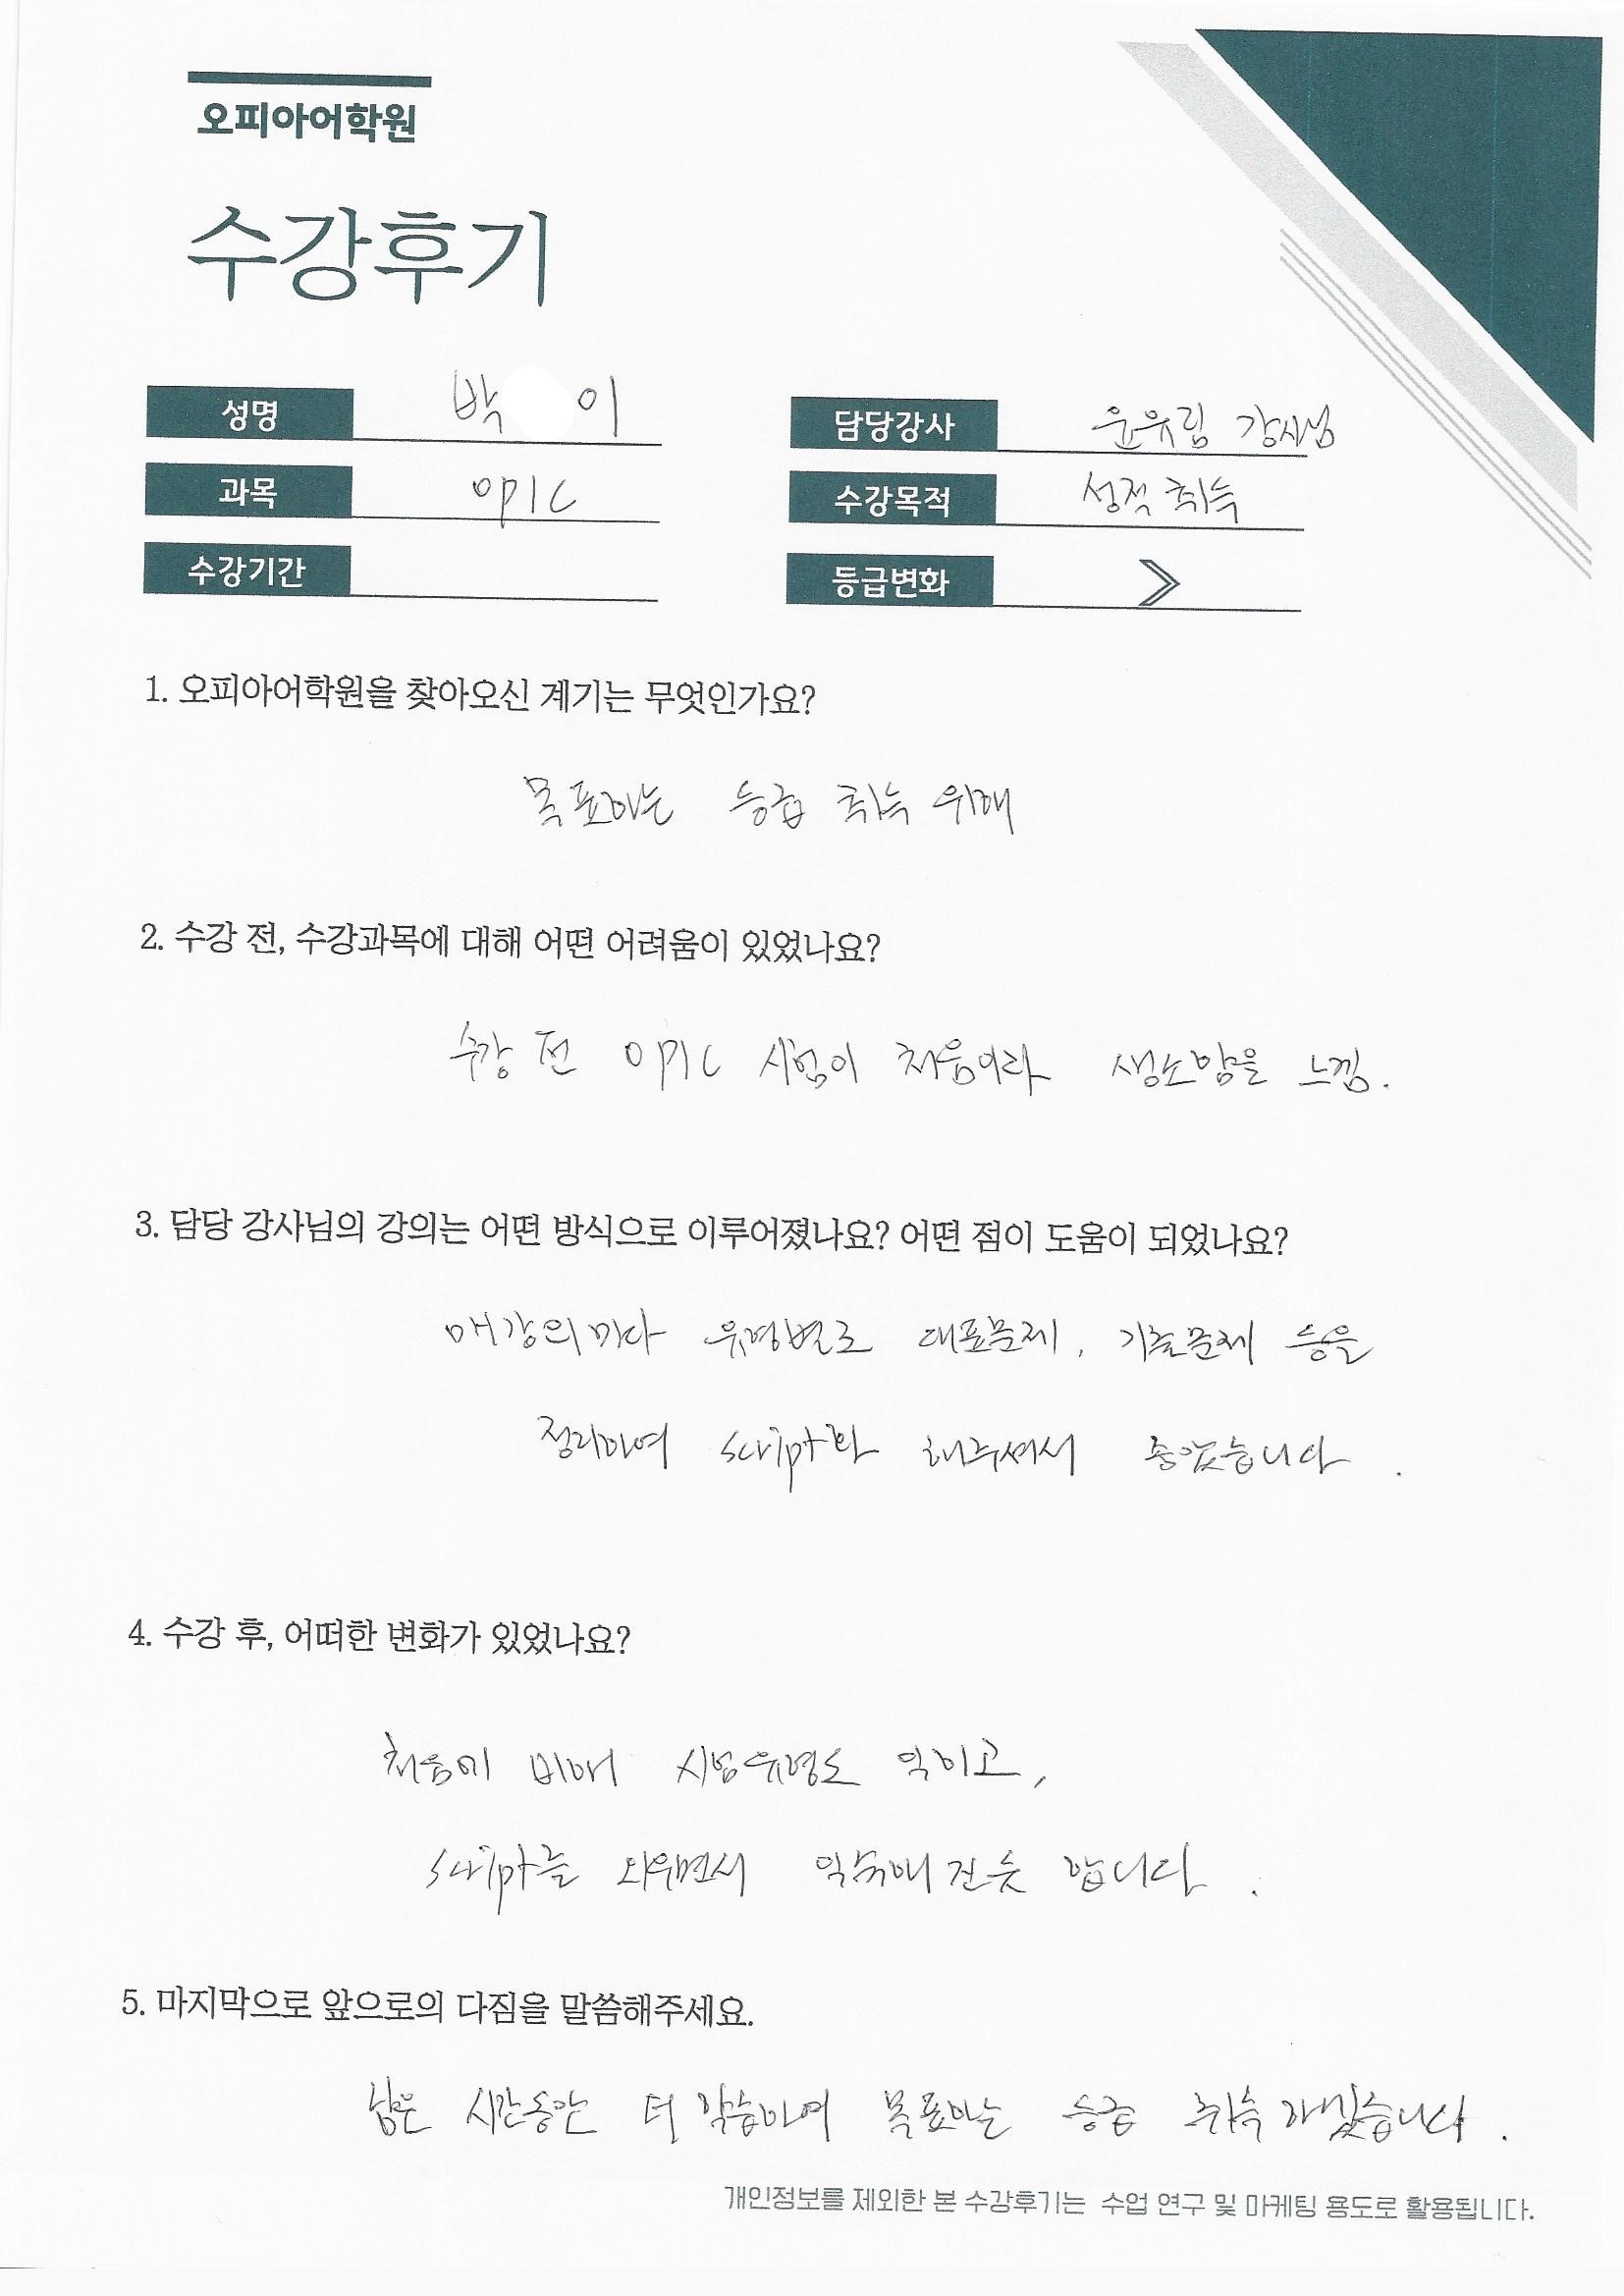 오피아어학원
수강후기
성명 박 이 담당강사 윤유림 강사님
과목 OPIC 수강목적 성적 취득
수강기간 등급변화
1. 오피아어학원을 찾아오신 계기는 무엇인가요?
목표하는 등급 취득 위해
2. 수강 전, 수강과목에 대해 어떤 어려움이 있었나요?
수강 전 OPIC 시험이 처음이라 생소함을 느낌.
3. 담당 강사님의 강의는 어떤 방식으로 이루어졌나요? 어떤 점이 도움이 되었나요?
매강의마다 유형별로 대표문제, 기출문제 등을
정리하여 script화 해주셔서 좋았습니다.
4. 수강 후, 어떠한 변화가 있었나요?
처음에 비해 시험유형도 익히고,
script를 외우면서 익숙해진듯 합니다.
5. 마지막으로 앞으로의 다짐을 말씀해주세요.
남은 시간동안 더 학습하여 목표하는 등급 취득하겠습니다.
개인정보를 제외한 본 수강후기는 수업 연구 및 마케팅 용도로 활용됩니다.